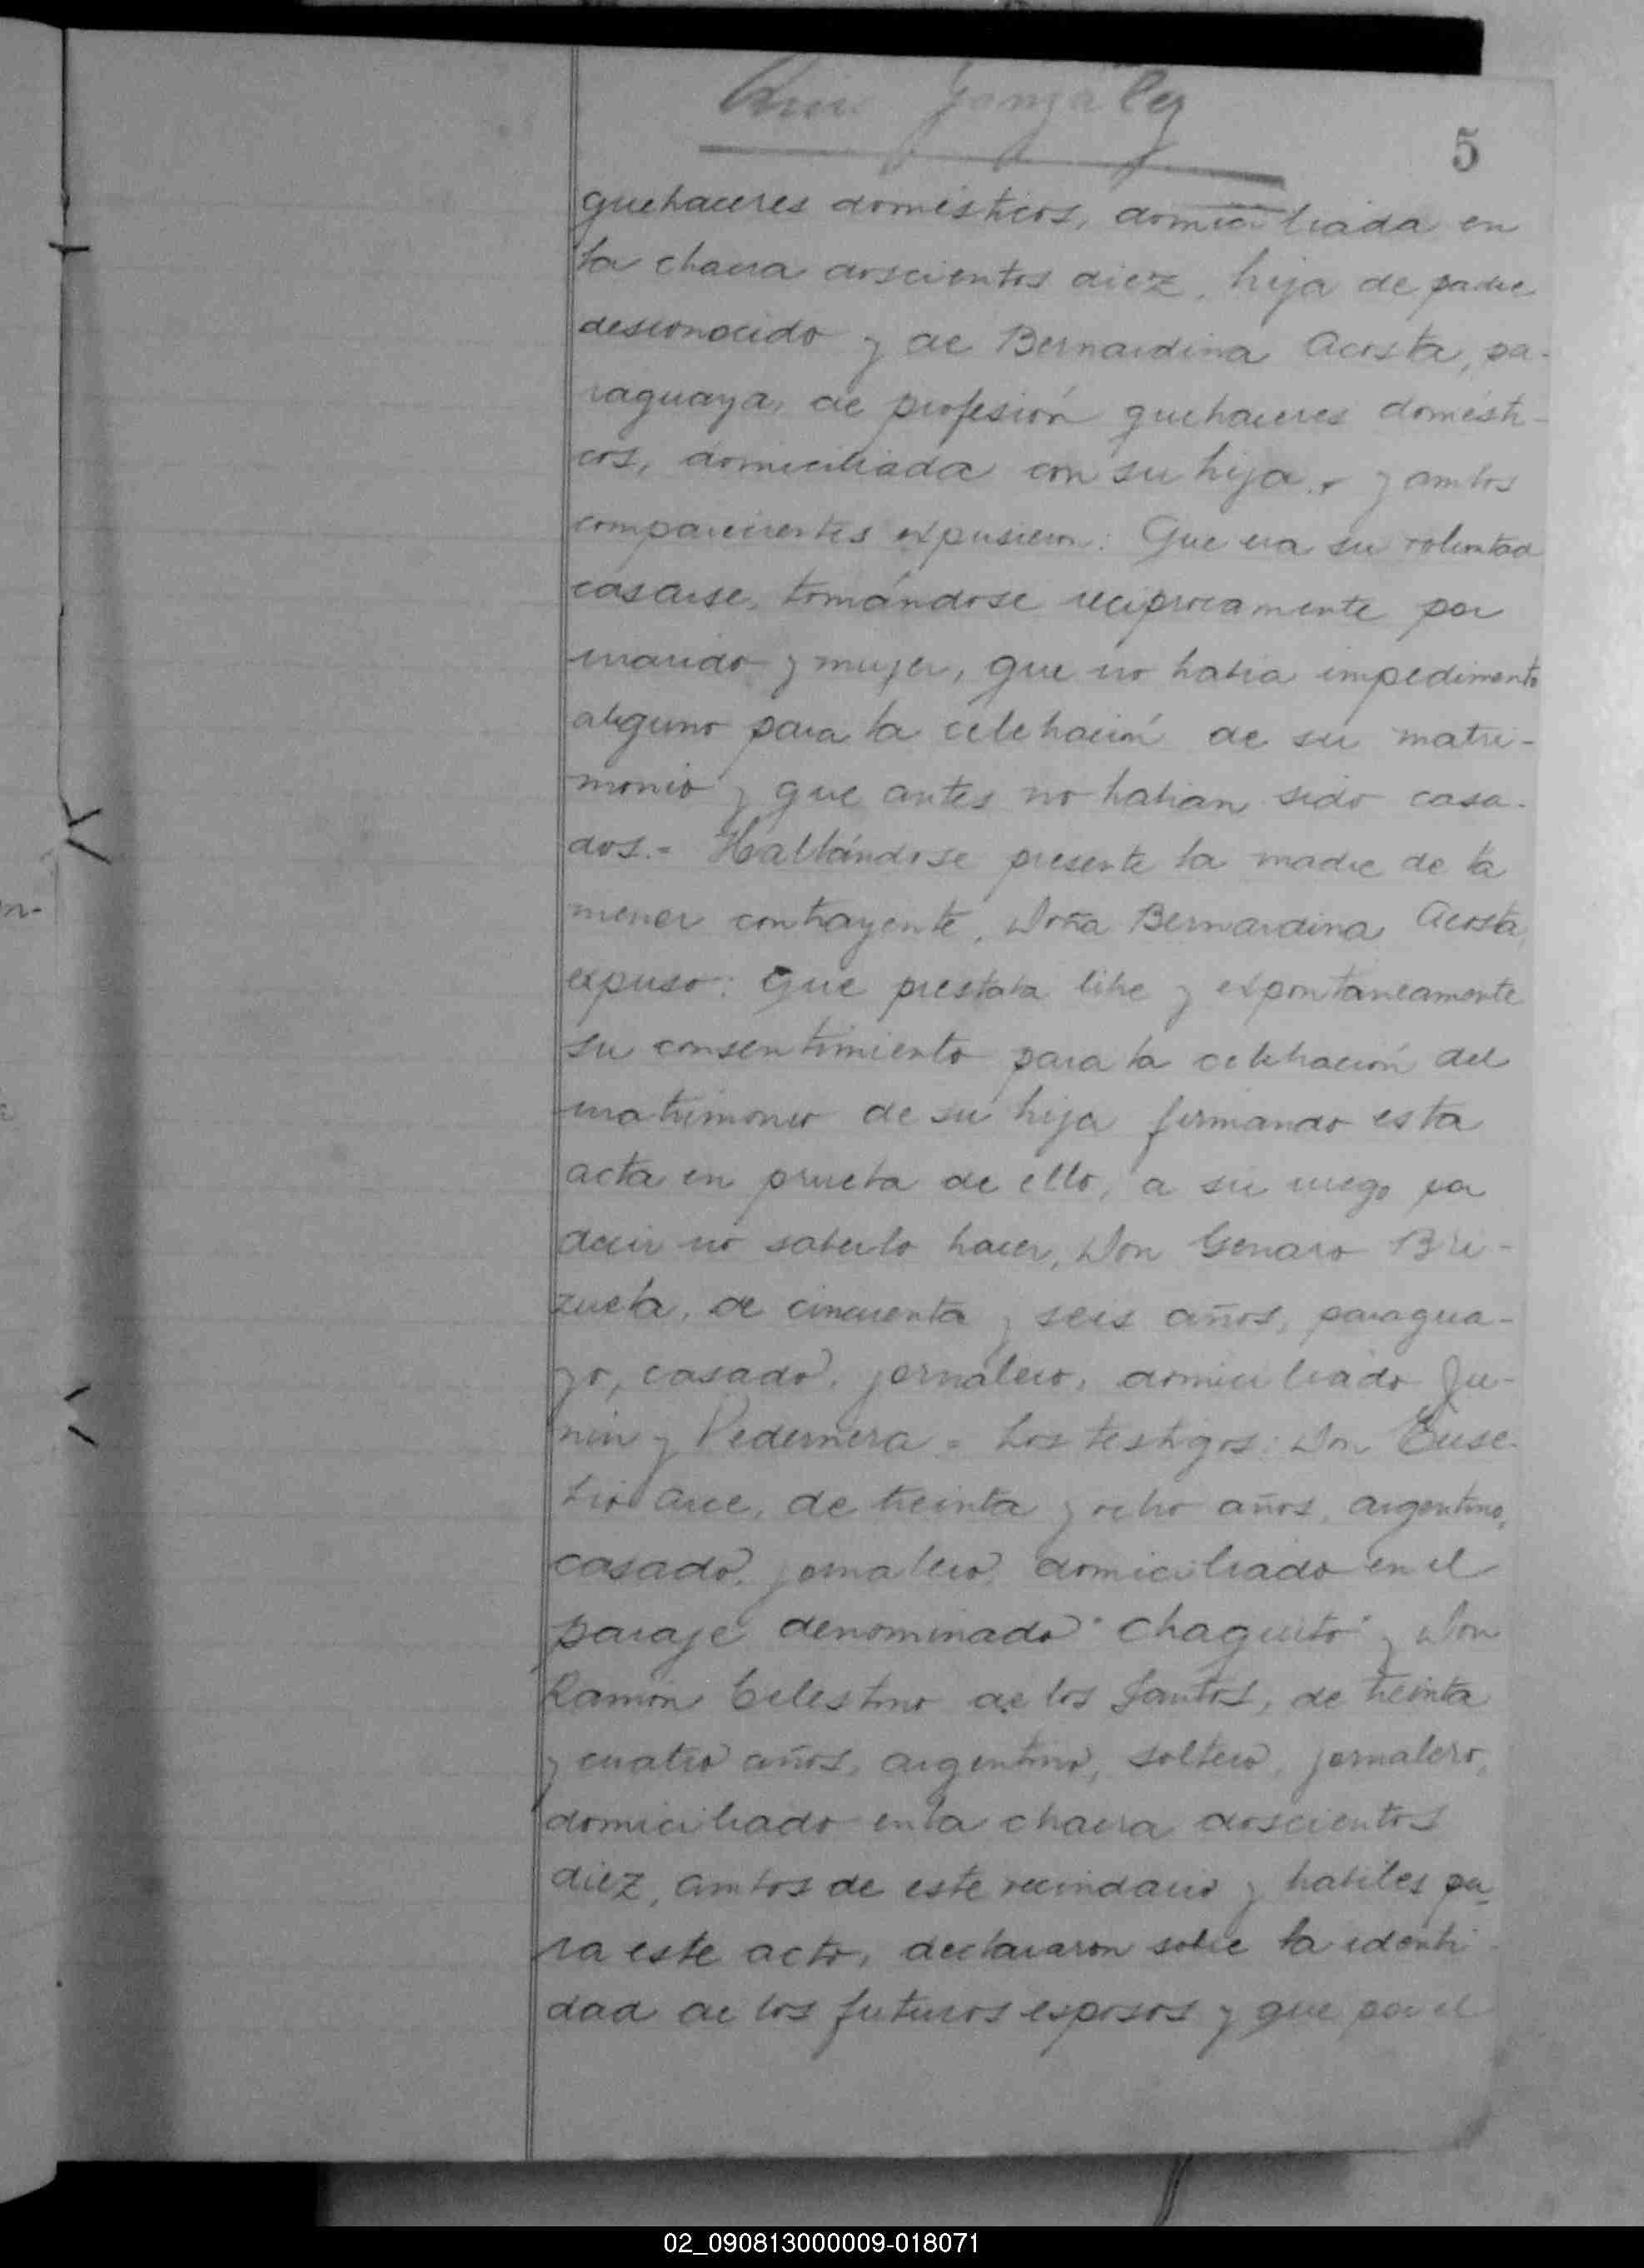 González
5
quehaceres domésticos, domiciliada en
la chacra doscientos diez, hija de padre
desconocido y de Bernardina Acosta, pa-
raguaya, de profesión quehaceres domésti-
cos, domiciliada con su hija.- y ambos
comparecientes expusieron: Que era su voluntad
casarse, tomándose recíprocamente por
marido y mujer, que no había impedimento
alguno para la celebración de su matri-
monio y que antes no habían sido casa-
dos.= Hallándose presente la madre de la
menor contrayente, Doña Bernardina Acosta,
expuso: Que prestaba libre y expontaneamente
su consentimiento para la celebración del
matrimonio de su hija firmando esta
acta en prueba de ello, a su ruego por
decir no saberlo hacer, Don Genaro Bri-
zuela, de cincuenta y seis años, paragua-
yo, casado, jornalero, domiciliado Ju-
nin y Pedernera = Los testigos: Don Euse-
bio Arce, de treinta y ocho años, argentino,
casado, jornalero, domiciliado en el
paraje denominado "Chaquito" y Don
Ramón Celestino de los Santos, de treinta
y cuatro años, argentino, soltero, jornalero,
domiciliado en la chacra doscientos
diez, ambos de este vecindario y habiles pa-
ra este acto, declararon sobre la identi-
dad de los futuros esposos y que por el
02_090813000009-018071